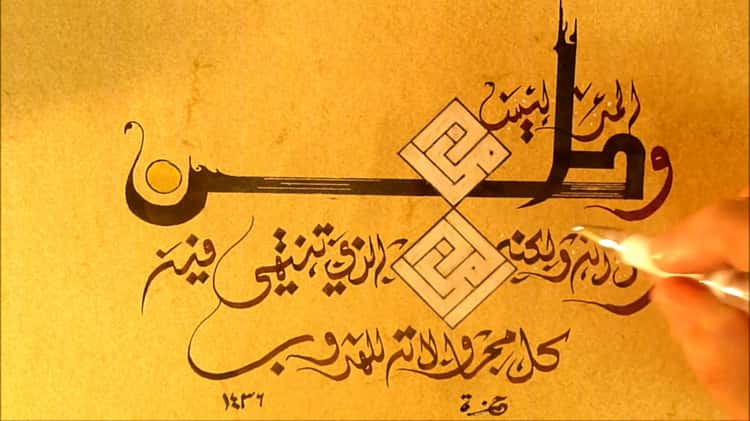 وطن
المرء ليس
مكان
ولادته ولكنه المكان الذي تنتهي فيه
كل محاولاته للهروب
حمزة ١٤٣٦